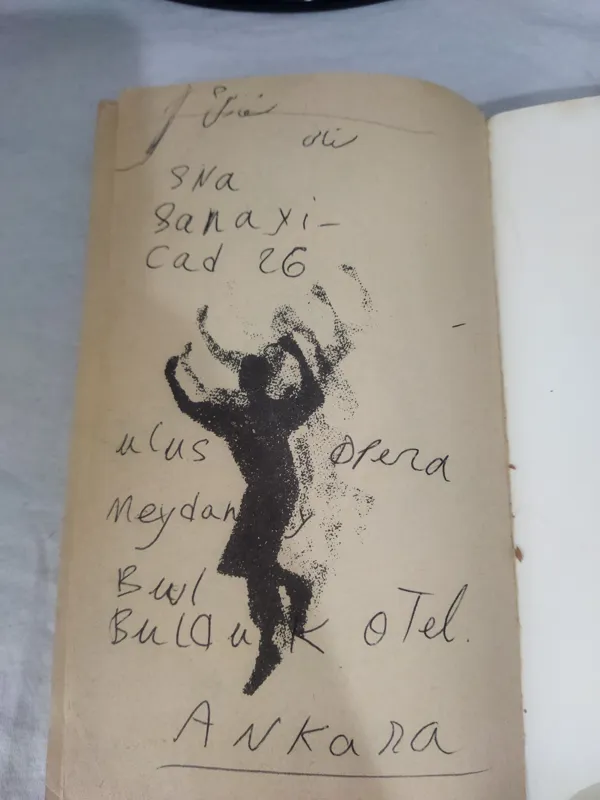 SNa
Sanayi-
Cad 26
ulus Opera
Meydan y
Bul
Bulduk oTel.
ANKara